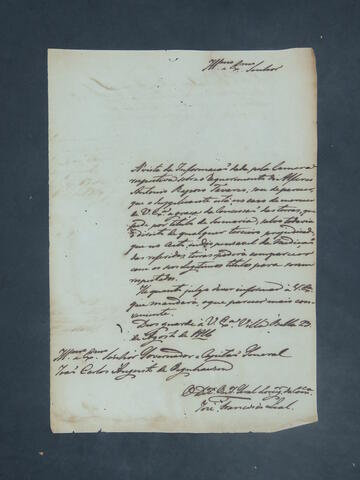 Illmo. Exmo. Senhor
Á vista da Informaçaõ dada pela Camara
respectiva sobre o requerimento do Alferes
Antonio Rapozo Tavares, sou de parecer,
que o supplicante está no caso de merecer
de V. Exa. a graça da Concessaõ das terras, que
pede por titulo de Sesmaria, salvo todavia
o direito de qualquer terceiro prejudicado,
que no acto indispensavel da Medicaõ
das referidas terras poderá comparecer
com os seos legitimos titulos para serem
respeitados.
He quanto julgo dever informar a V. Exa.
que mandará o que parecer mais con-
veniente.
Deos guarde a V. Exa. Villa Bella 23
de Agosto de
Illmo. Exmo. Senhor Governador e Capitaõ General
Joaõ Carlos Augusto de Oeynhausen
Joze Francisco Leal.